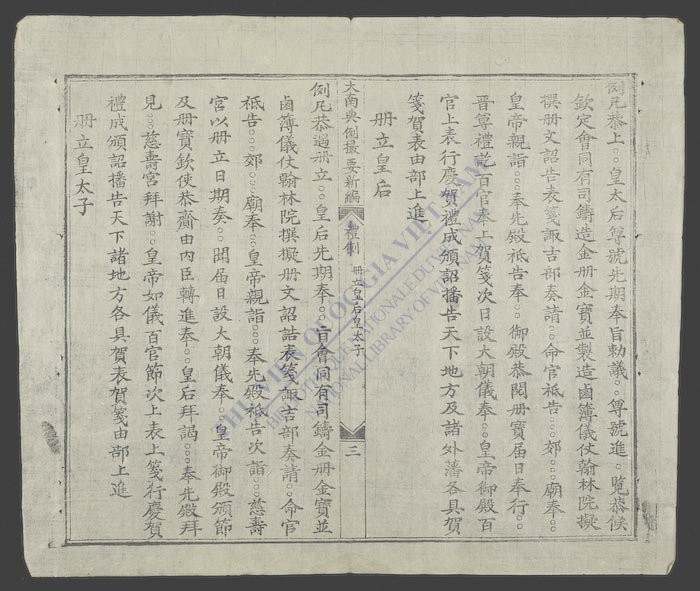 例凡恭上○○皇太后尊號先期奉旨勅議○○尊號進○覽恭候
欽定會同有司鑄造金册金寶並製造鹵簿儀仗翰林院擬
撰册文詔告表箋諏吉部奏請○○命官祗告○○○郊○○○廟奉○○
皇帝親詣○○○奉先殿祗告奉○○御殿恭閱册寶届日奉行○○
晉尊禮訖百官奉上賀箋次日設大朝儀奉○○皇帝御殿百
官上表行慶賀禮成頒詔播告天下地方及諸外藩各具賀
箋賀表由部上進
册立皇后
大南典例撮要新編 禮例 册立皇后皇太子 三
例凡恭遇册立○○皇后先期奉○○旨會同有司鑄金册金寶並
鹵簿儀仗翰林院撰擬册文詔誥表箋諏吉部奏請○○命官
祗告○○○郊○○○廟奉○○皇帝親詣○○○奉先殿祗告次詣○○○慈壽
宮以册立日期奏○○聞届日設大朝儀奉○○皇帝御殿頒節
及册寶欽使恭齎由內臣轉進奉○○皇后拜謁○○○奉先殿拜
見○○○慈壽宮拜謝○○皇帝如儀百官節次上表上箋行慶賀
禮成頒詔播告天下諸地方各具賀表賀箋由部上進
册立皇太子
THƯ VIỆN QUỐC GIA VIỆT NAM
BIBLIOTHÈQUE NATIONALE DU VIETNAM
NATIONAL LIBRARY OF VIETNAM